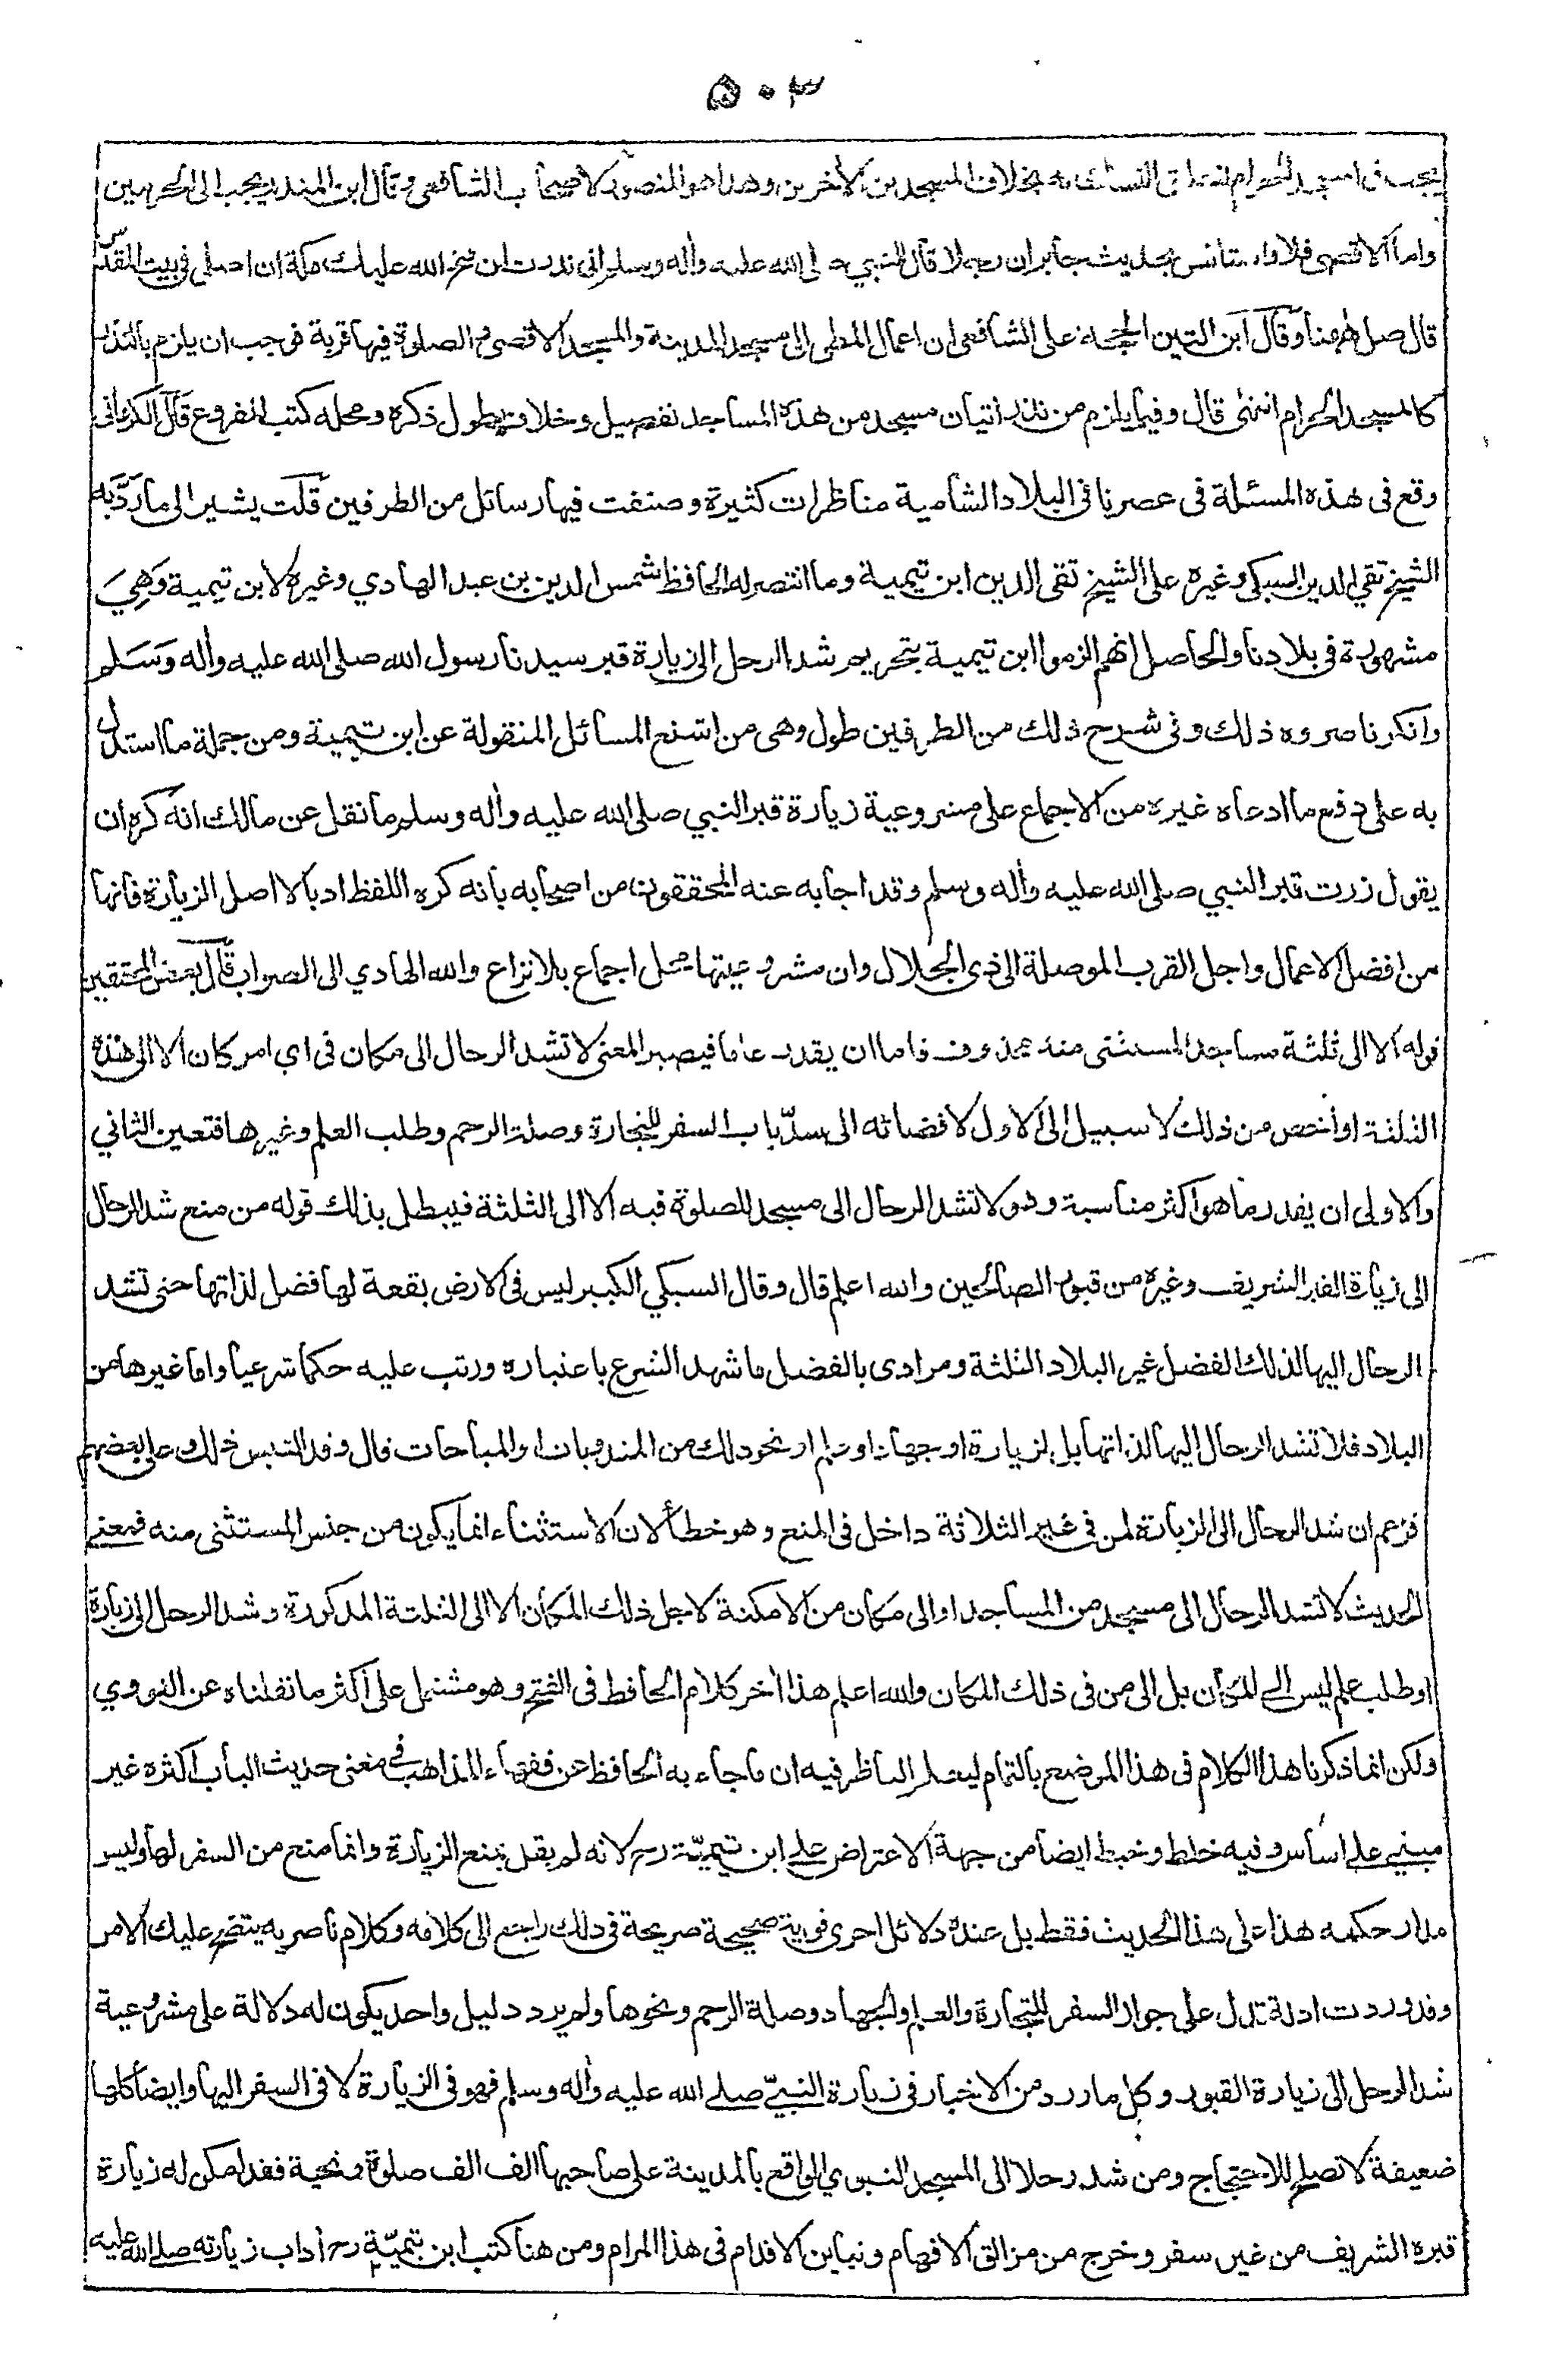 ٥٠٣
يجب فى المسجد الحرام لتعلق النسك به بخلاف المسجدين الأخرين وهذا هو المنصور لاصحاب الشافعى وقال ابن المنذر يجب الى الحرمين
واما الاقصى فلا واستأنس بحديث جابر ان رجلا قال للنبي صلى الله عليه وأله وسلم انى نذرت ان فتح الله عليك مكة ان اصلى فى بيت المقدس
قال صل ههنا وقال ابن التين الحجة على الشافعى ان اعمال المطى الى مسجد المدينة والمسجد الاقصى و الصلوة فيها قربة فوجب ان يلزم بالنذر
كالمسجد الحرام انتهى قال وفيما يلزم من نذر اتيان مسجد من هذه المساجد تفصيل وخلاف يطول ذكره ومحله كتب الفروع قال الكرمانى
وقع فى هذه المسئلة فى عصرنا فى البلاد الشامية مناظرات كثيرة وصنفت فيها رسائل من الطرفين قلت يشير الى ما ردّ به
الشيخ تقي الدين السبكى وغيره على الشيخ تقى الدين ابن تيمية وما انتصر له الحافظ شمس الدين بن عبد الهادي وغيره لابن تيمية وَهِيَ
مشهورة فى بلادنا والحاصل انهم الزموا ابن تيمية بتحريم شد الرحل الى زيارة قبر سيدنا رسول الله صلى الله عليه وأله وَسَلم
وانكر ناصروه ذلك وفى شرح ذلك من الطرفين طول وهى من اشنع المسائل المنقولة عن ابن تيمية ومن جملة ما استدل
به على دفع ما ادعاه غيره من الاجماع على مشروعية زيارة قبر النبي صلى الله عليه وأله وسلم ما نقل عن مالك انه كره ان
يقول زرت قبر النبي صلى الله عليه وأله وسلم وقد اجابه عنه المحققون من اصحابه بانه كره اللفظ ادبا لا اصل الزيارة فانها
من افضل الاعمال واجل القرب الموصلة الى ذى الجلال وان مشروعيتها محل اجماع بلا نزاع والله الهادي الى الصواب قال بعض المحققين
قوله الا الى ثلثة مساجد المستثنى منه محذوف فاما ان يقدر عاما فيصير المعنى لا تشد الرحال الى مكان فى اي امر كان الا الى هذه
الثلثة او اخص من ذلك لا سبيل الى الاول لافضائه الى سدّ باب السفر للتجارة وصلة الرحم وطلب العلم وغيرها فتعين الثاني
والاولى ان يقدر ما هو اكثر مناسبة وهو لا تشد الرحال الى مسجد للصلوة فيه الا الى الثلثة فيبطل بذلك قوله من منع شد الرحال
الى زيارة القبر الشريف وغيره من قبور الصالحين والله اعلم قال وقال السبكي الكبير ليس فى الارض بقعة لها فضل لذاتها حتى تشد
الرحال اليها لذلك الفضل غير البلاد الثلثة ومرادى بالفضل ما شهد الشرع باعتباره ورتب عليه حكما شرعيا واما غيرها من
البلاد فلا تشد الرحال اليها لذاتها بل لزيارة او جهاد او علم او نحو ذلك من المندوبات او المباحات قال وقد التبس ذلك على بعضهم
فزعم ان شد الرحال الى الزيارة لمن فى غير الثلاثة داخل فى المنع وهو خطأ لان الاستثناء انما يكون من جنس المستثنى منه فمعنى
الحديث لا تشد الرحال الى مسجد من المساجد او الى مكان من الامكنة لاجل ذلك المكان الا الى الثلثة المذكورة وشد الرحل الى زيارة
او طلب علم ليس الى المكان بل الى من فى ذلك المكان والله اعلم هذا أخر كلام الحافظ فى الفتح وهو مشتمل على اكثر ما نقلناه عن النووي
ولكن انما ذكرنا هذا الكلام فى هذا الموضع بالتمام ليعلم الناظر فيه ان ما جاء به الحافظ عن فقهاء المذاهب فى معنى حديث الباب اكثره غير
مبني على اساس وفيه خلط وخبط ايضا من جهة الاعتراض على ابن تيميّة رح لانه لم يقل بمنع الزيارة وانما منع من السفر لها وليس
مدار حكمه هذا على هذا الحديث فقط بل عنده دلائل اخرى قوية صحيحة صريحة فى ذلك راجع الى كلامه وكلام ناصريه يتضح عليك الامر
وقد وردت ادلة تدل على جواز السفر للتجارة والعلم والجهاد وصلة الرحم ونحوها ولم يرد دليل واحد يكون له دلالة على مشروعية
شد الرحل الى زيارة القبور وكل ما ورد من الاخبار فى زيارة النبيّ صلى الله عليه وأله وسلم فهو فى الزيارة لا فى السفر اليها وايضا كلها
ضعيفة لا تصلح للاحتجاج ومن شد رحلا الى المسجد النبوي الواقع بالمدينة على صاحبها الف الف صلوة وتحية فقد امكن له زيارة
قبره الشريف من غير سفر وخرج من مزالق الافهام وتباين الاقدام فى هذا المرام ومن هنا كتب ابن تيميّة رح أداب زيارته صلى الله عليه